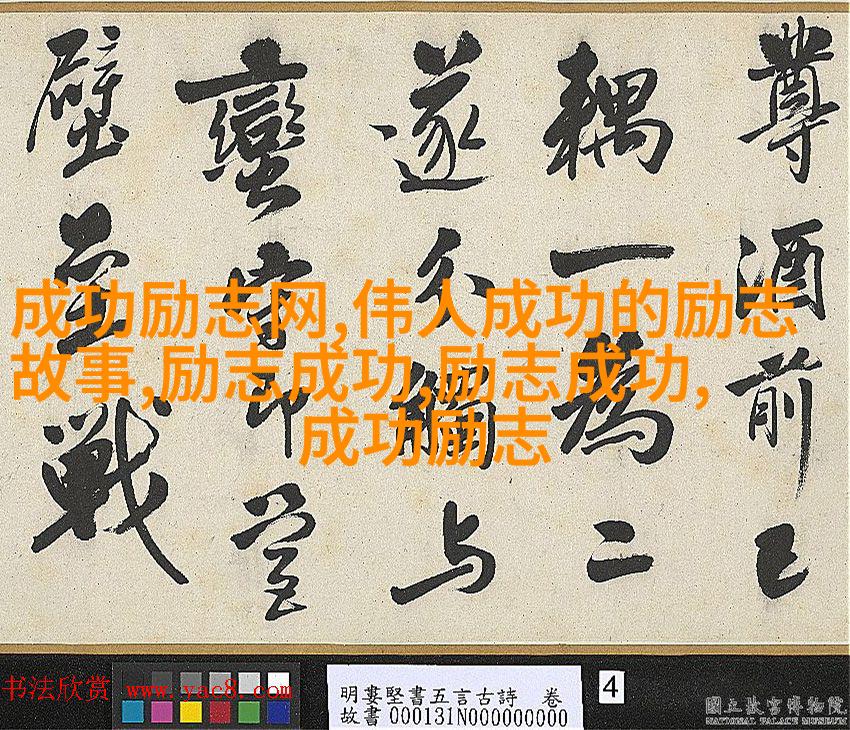 尊酒前已
耦一為二
遂分觸与
蠻即營
壁壘戰
成功励志网,伟人成功的励志
故事,励志成功,励志成功,
成功励志
书法欣赏 www.yac8.com
明婁堅書五言古詩 卷
故書000131N000000000
4
國立故宮博物院
NATIONAL PALACE MUSEUM